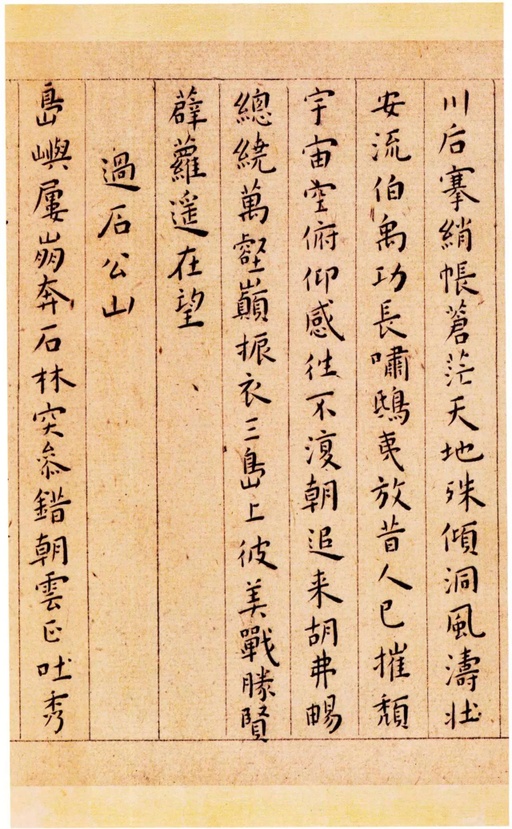 川后搴綃帳蒼茫天地殊傾洞風濤壯
安流伯禹功長嘯鴟夷放昔人已摧頹
宇宙空俯仰感徃不復朝追来胡弗暢
總繞萬壑巔振衣三島上彼美戰勝賢
薜蘿遥在望
過石公山
島嶼屢崩奔石林突參錯朝雲正吐秀